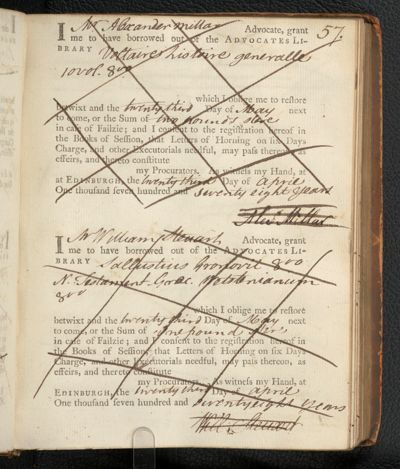 57.
I Mr Alexander Millar Advocate, grant
me to have borrowed out of the ADVOCATES LI-
BRARY Voltaires histoire generalle
10 vol. 8vo
which I oblige me to restore
betwixt and the twenty third Day of May next
to come, or the Sum of two pounds
in case of Failzie; and I consent to the registration hereof in
the Books of Session, that Letters of Horning on six Days
Charge, and other Executorials needful, may pass thereon, as
effeirs, and thereto constitute
my Procurators. As witness my Hand, at
at EDINBURGH, the twenty third Day of April
One thousand seven hundred and seventy eight years
Alexr Millar
I Mr William Steuart Advocate, grant
me to have borrowed out of the ADVOCATES LI-
BRARY Sallustius Gronovii 8vo
N. Testament. Graec. 
8vo
which I oblige me to restore
betwixt and the twenty third Day of May next
to come, or the Sum of one pound
in case of Failzie; and I consent to the registration hereof in
the Books of Session, that Letters of Horning on six Days
Charge, and other Executorials needful, may pass thereon, as
effeirs, and thereto constitute
my Procurators. As witness my Hand, at
EDINBURGH, the twenty third Day of April
One thousand seven hundred and seventy eight years
Will: Steuart